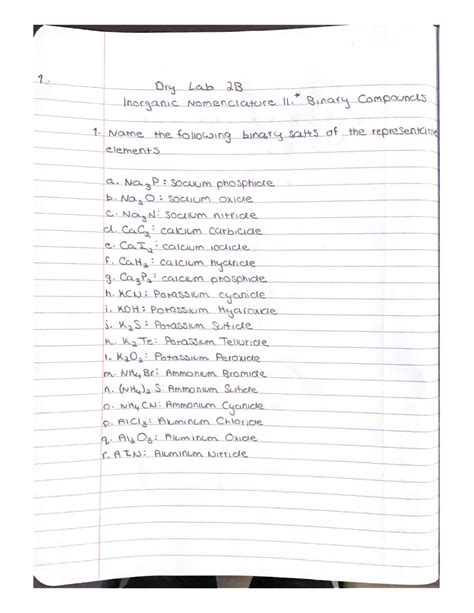 1.
Dry Lab 2B
Inorganic Nomenclature II.* Binary Compounds
1. Name the following binary salts of the representative
elements
a. Na₃P: Sodium phosphide
b. Na₂O: sodium oxide
c. Na₃N: Sodium nitride
d. CaC₂: calcium carbicide
e. CaI₂: calcium iodide
f. CaH₂: calcium hydride
g. Ca₃P₂: calcium phosphide
h. KCN: Potassium cyanide
i. KOH: Potassium Hydroxide
j. K₂S: Potassium Sulfide
k. K₂Te: Potassium Telluride
l. K₂O₂: Potassium Peroxide
m. NH₄Br: Ammonium Bromide
n. (NH₄)₂S: Ammonium Sulfide
o. NH₄CN: Ammonium Cyanide
p. AlCl₃: Aluminum Chloride
q. Al₂O₃: Aluminum Oxide
r. AlN: Aluminum Nitride